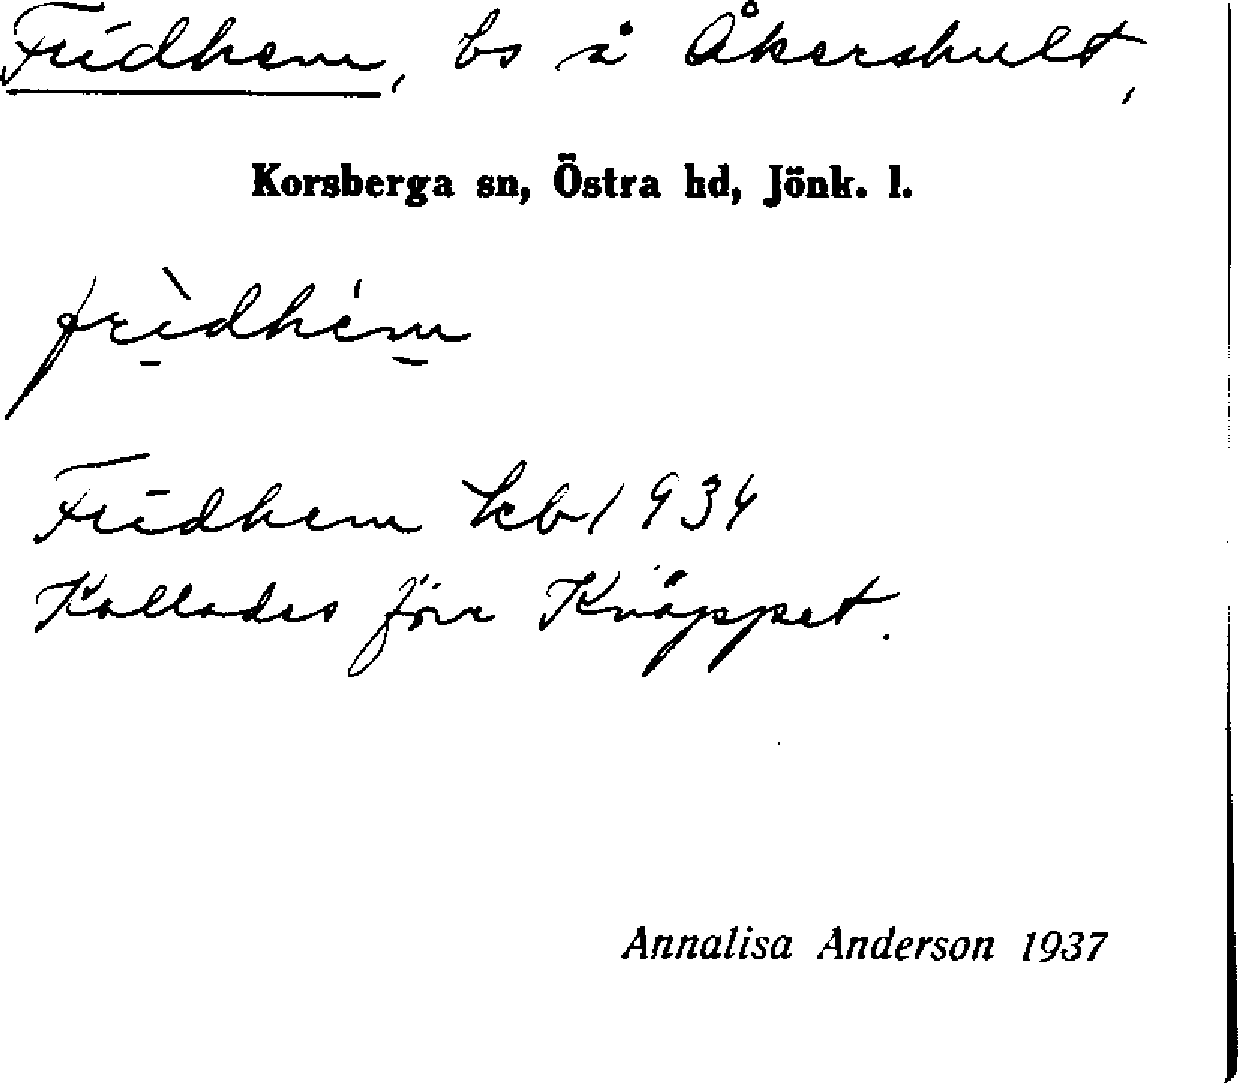 Fridhem, bs å Åkershult,
Korsberga sn, Östra hd, Jönk. l.
frìdhém
Fridhem kb 1934
Kallades förr Knäppet.
Annalisa Anderson 1937